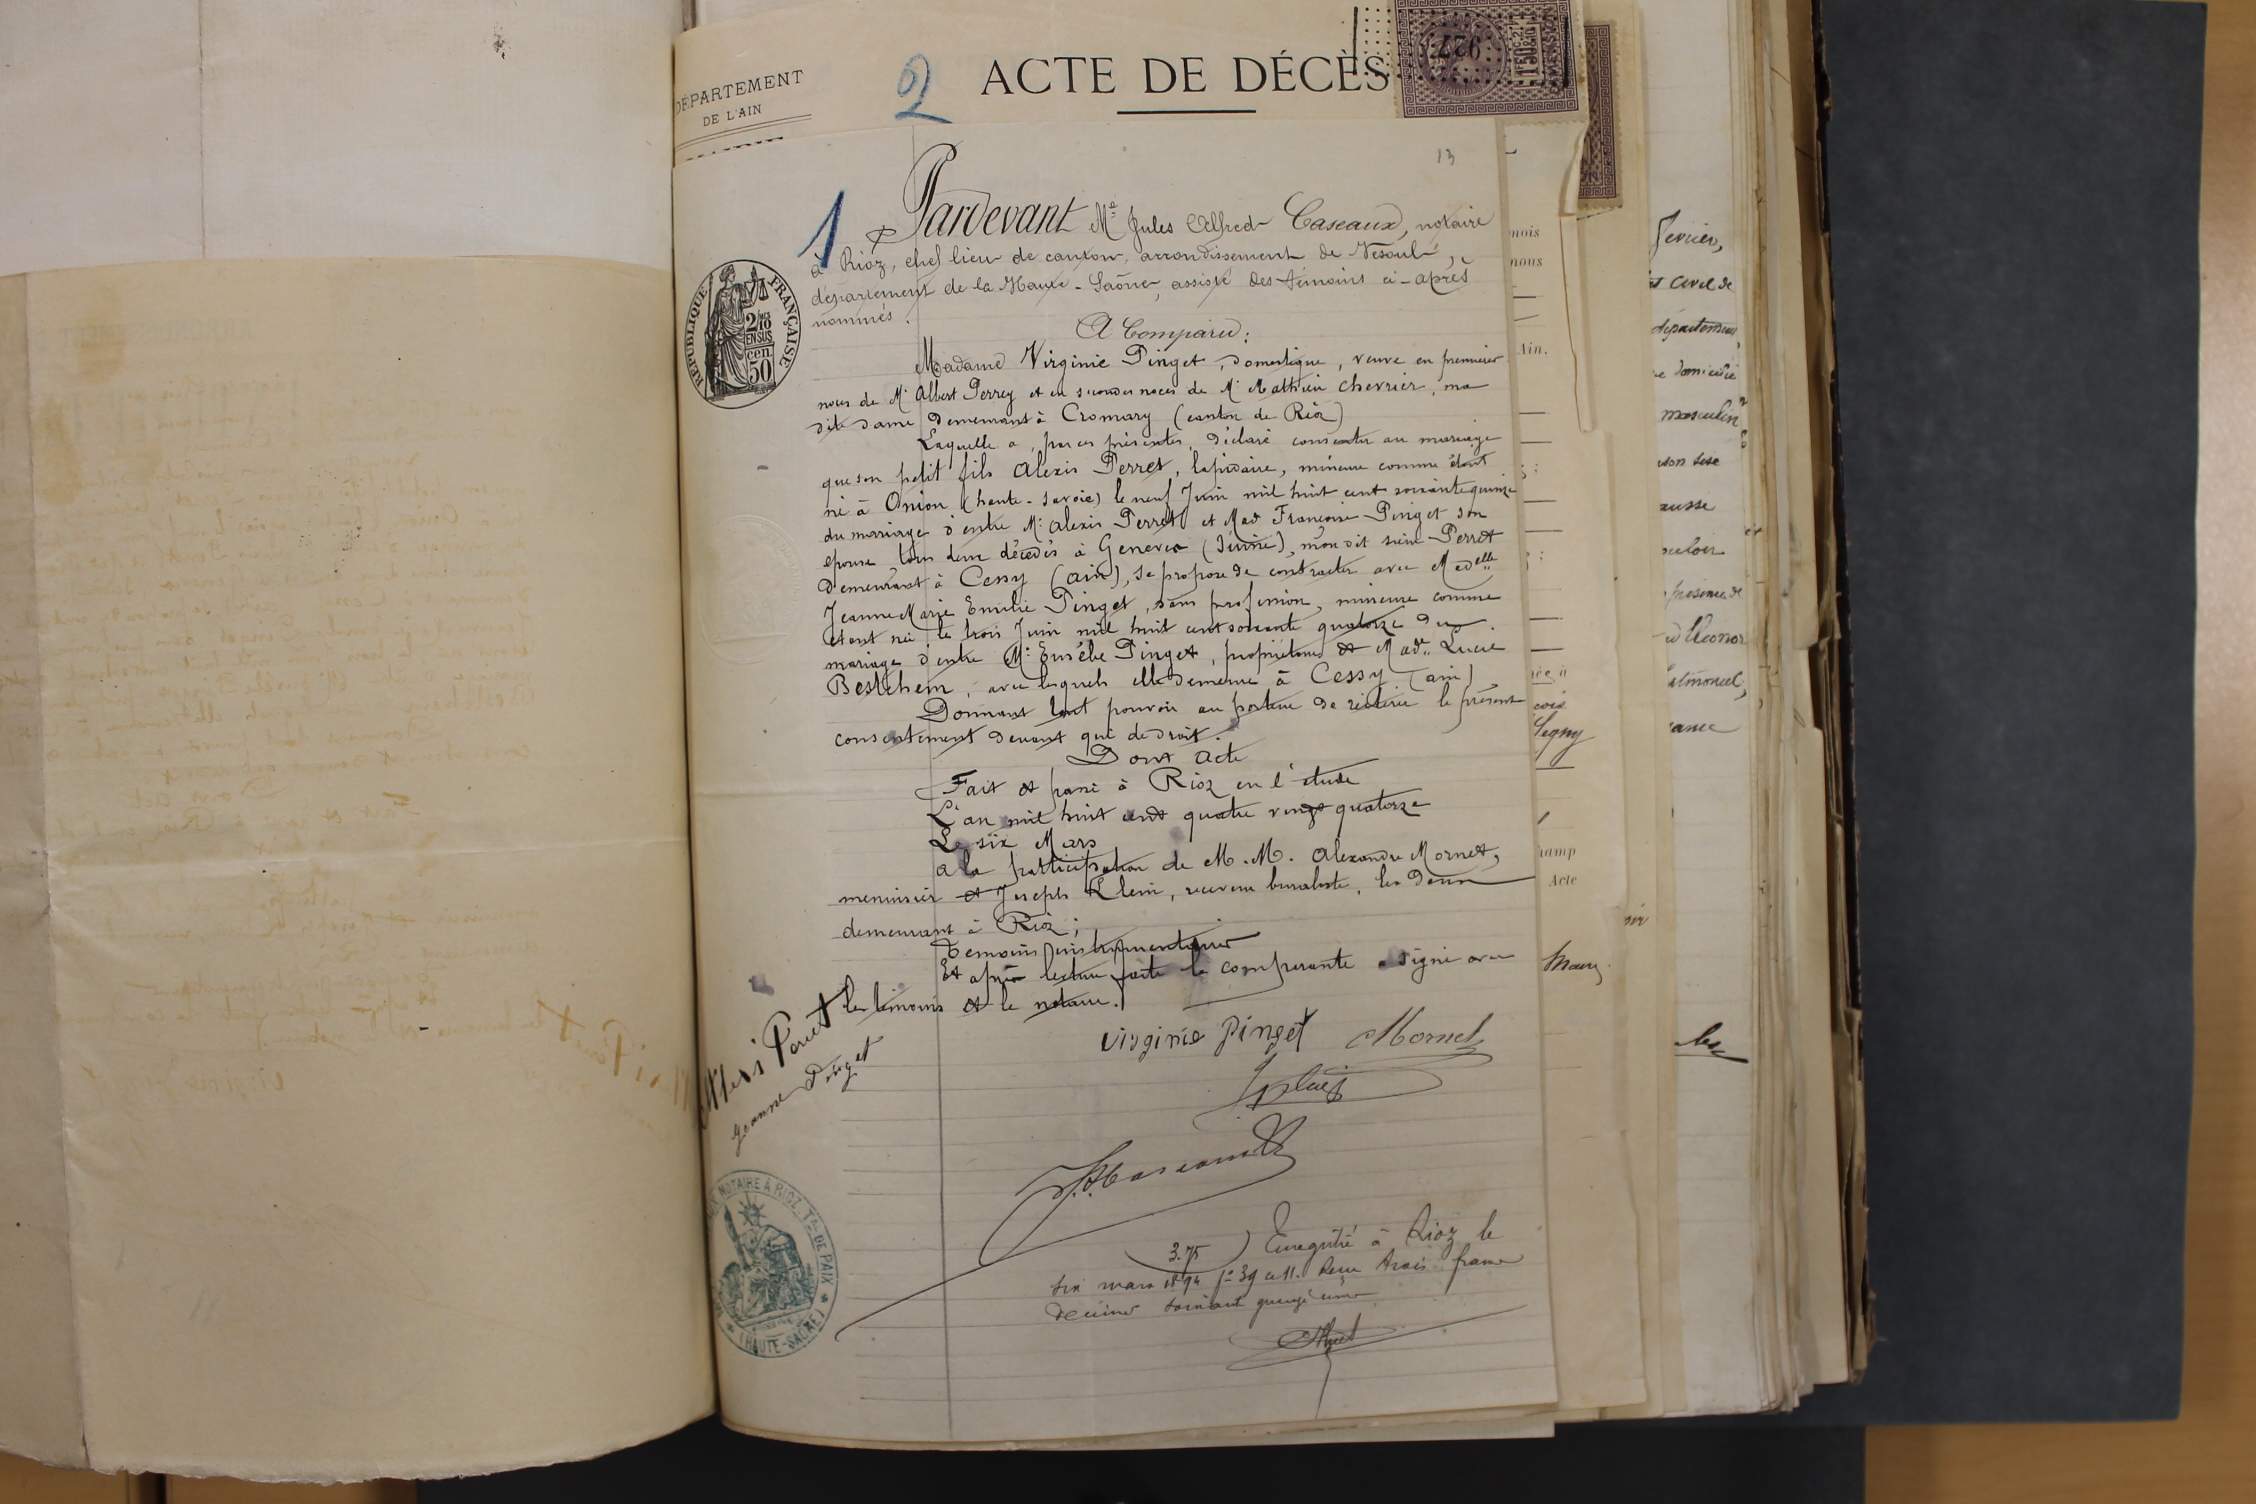 DÉPARTEMENT
DE L'AIN
2
ACTE DE DÉCÈS
13
1
Pardevant Me Jules Alfred Caseaux, notaire
à Rioz, chef lieu de canton, arrondissement de Vesoul,
département de la Haute-Saône, assisté des témoins ci-après
nommés.
A Comparu:
Madame Virginie Pinget, domestique, veuve en premières
noces de Mr Albert Perrey et en secondes noces de Mr Mathieu Chevrier, ma
dite dame demeurant à Cromary (canton de Rioz)
Laquelle a, par ces présentes, déclaré consentir au mariage
que son petit fils Alexis Perret, lapidaire, mineure comme étant
né à Onion (haute-savoie) le neuf Juin mil huit cent soixante quinze
du mariage d'entre Mr Alexis Perret et Mad Françoise Pinget son
épouse tous deux décédés à Genève (Suisse), mondit sieur Perret
demeurant à Cessy (ain), se propose de contracter avec Medelle
Jeanne Marie Emilie Pinget, sans profession, mineure comme
étant née le trois Juin mil huit cent soixante quatorze du
mariage d'entre Mr Eusèbe Pinget, propriétaire et Made Lucie
Bestchem, avec lesquels elle demeure à Cessy (ain)
Donnant tout pouvoir au porteur de réitérer le présent
consentement devant qui de droit.
Dont acte
Fait et passé à Rioz en l'étude
L'an mil huit cent quatre vingt quatorze
Le six Mars
a la participation de M.M. Alexandre Mornet,
menuisier et Joseph Klein, receveur buraliste, les deux
demeurant à Rioz;
Témoins instrumentaires
Et après lecture faite la comparante a signé avec
les témoins et le notaire.
Alexis Perret
Jeanne Pinget
Virginie Pinget Mornet
3.75
Enregistré à Rioz le
six mars 1894 fo 39 c 11. Reçu trois francs
décimes soixante quinze cmes
REPUBLIQUE FRANÇAISE
2/10
EN SUS
cen
50
NOTAIRE À RIOZ, Tal DE PAIX
(HAUTE-SAÔNE)
927
DIMENSION
mois
nous
Ain.
Segny
Acte
février,
département
domicilié
masculin
son sexe